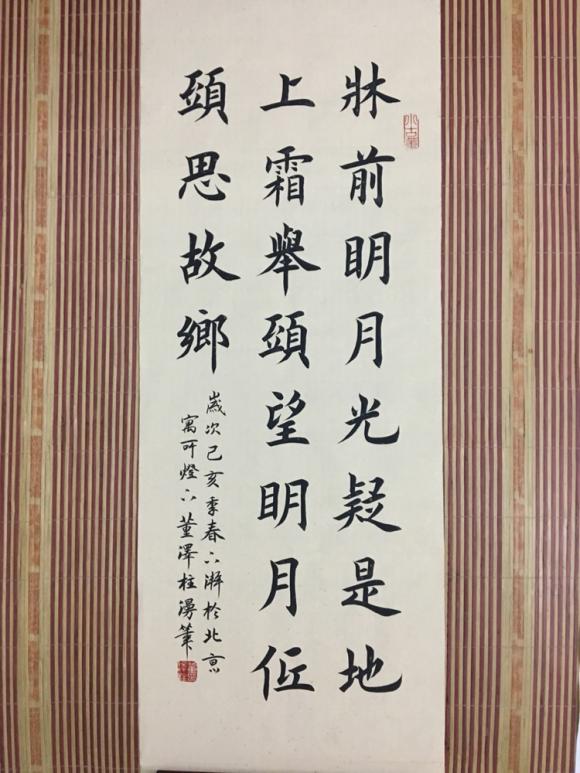 牀前眀月光疑是地
上霜舉頭望眀月低
頭思故鄉
歲次己亥季春下澣於北京
寓所燈下董澤柱筆